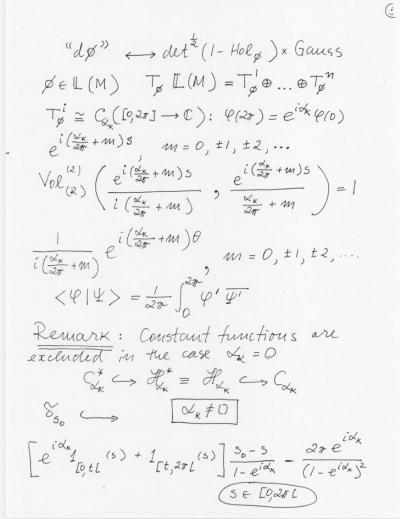 ①
"dϕ" ⟷ det^{1/2} (1 - Hol_ϕ) × Gauss
ϕ ∈ 𝕃(M) T_ϕ 𝕃(M) = T_ϕ^1 ⊕ ... ⊕ T_ϕ^n
T_ϕ^i ≅ C_{α_k}([0,2π] → ℂ): φ(2π) = e^{iα_k} φ(0)
e^{i(α_k/2π + m)s}, m = 0, ±1, ±2, ...
Vol_{(2)}^{(2)} ( e^{i(α_k/2π + m)s} / i(α_k/2π + m) , e^{i(α_k/2π + m)s} / (α_k/2π + m) ) = 1
1 / i(α_k/2π + m) e^{i(α_k/2π + m)θ}, m = 0, ±1, ±2, ....
<φ|Ψ> = 1/2π ∫_0^{2π} φ' \overline{Ψ'}
Remark: Constant functions are
excluded in the case α_k = 0
C*_{α_k} ↪ H*_{α_k} ≡ H_{α_k} ↪ C_{α_k}
δ_{s_0} ↪ α_k ≠ 0
[ e^{iα_k} 1_{[0,t[}(s) + 1_{[t,2π[}(s) ] (s_0 - s)/(1 - e^{iα_k}) - 2π e^{iα_k}/(1 - e^{iα_k})^2
s ∈ [0,2π[